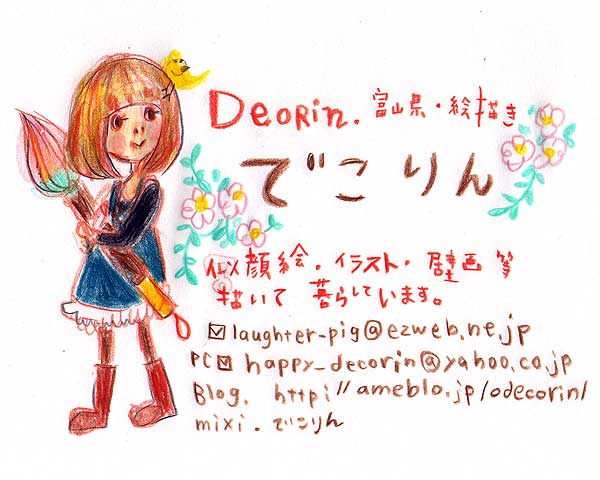 Decrin. 富山県・絵描き
でこりん
似顔絵・イラスト・壁画 等
描いて 暮らしています。
laughter-pig@ezweb.ne.jp
PC happy_decorin@yahoo.co.jp
Blog. http://ameblo.jp/odecorin/
mixi. でこりん